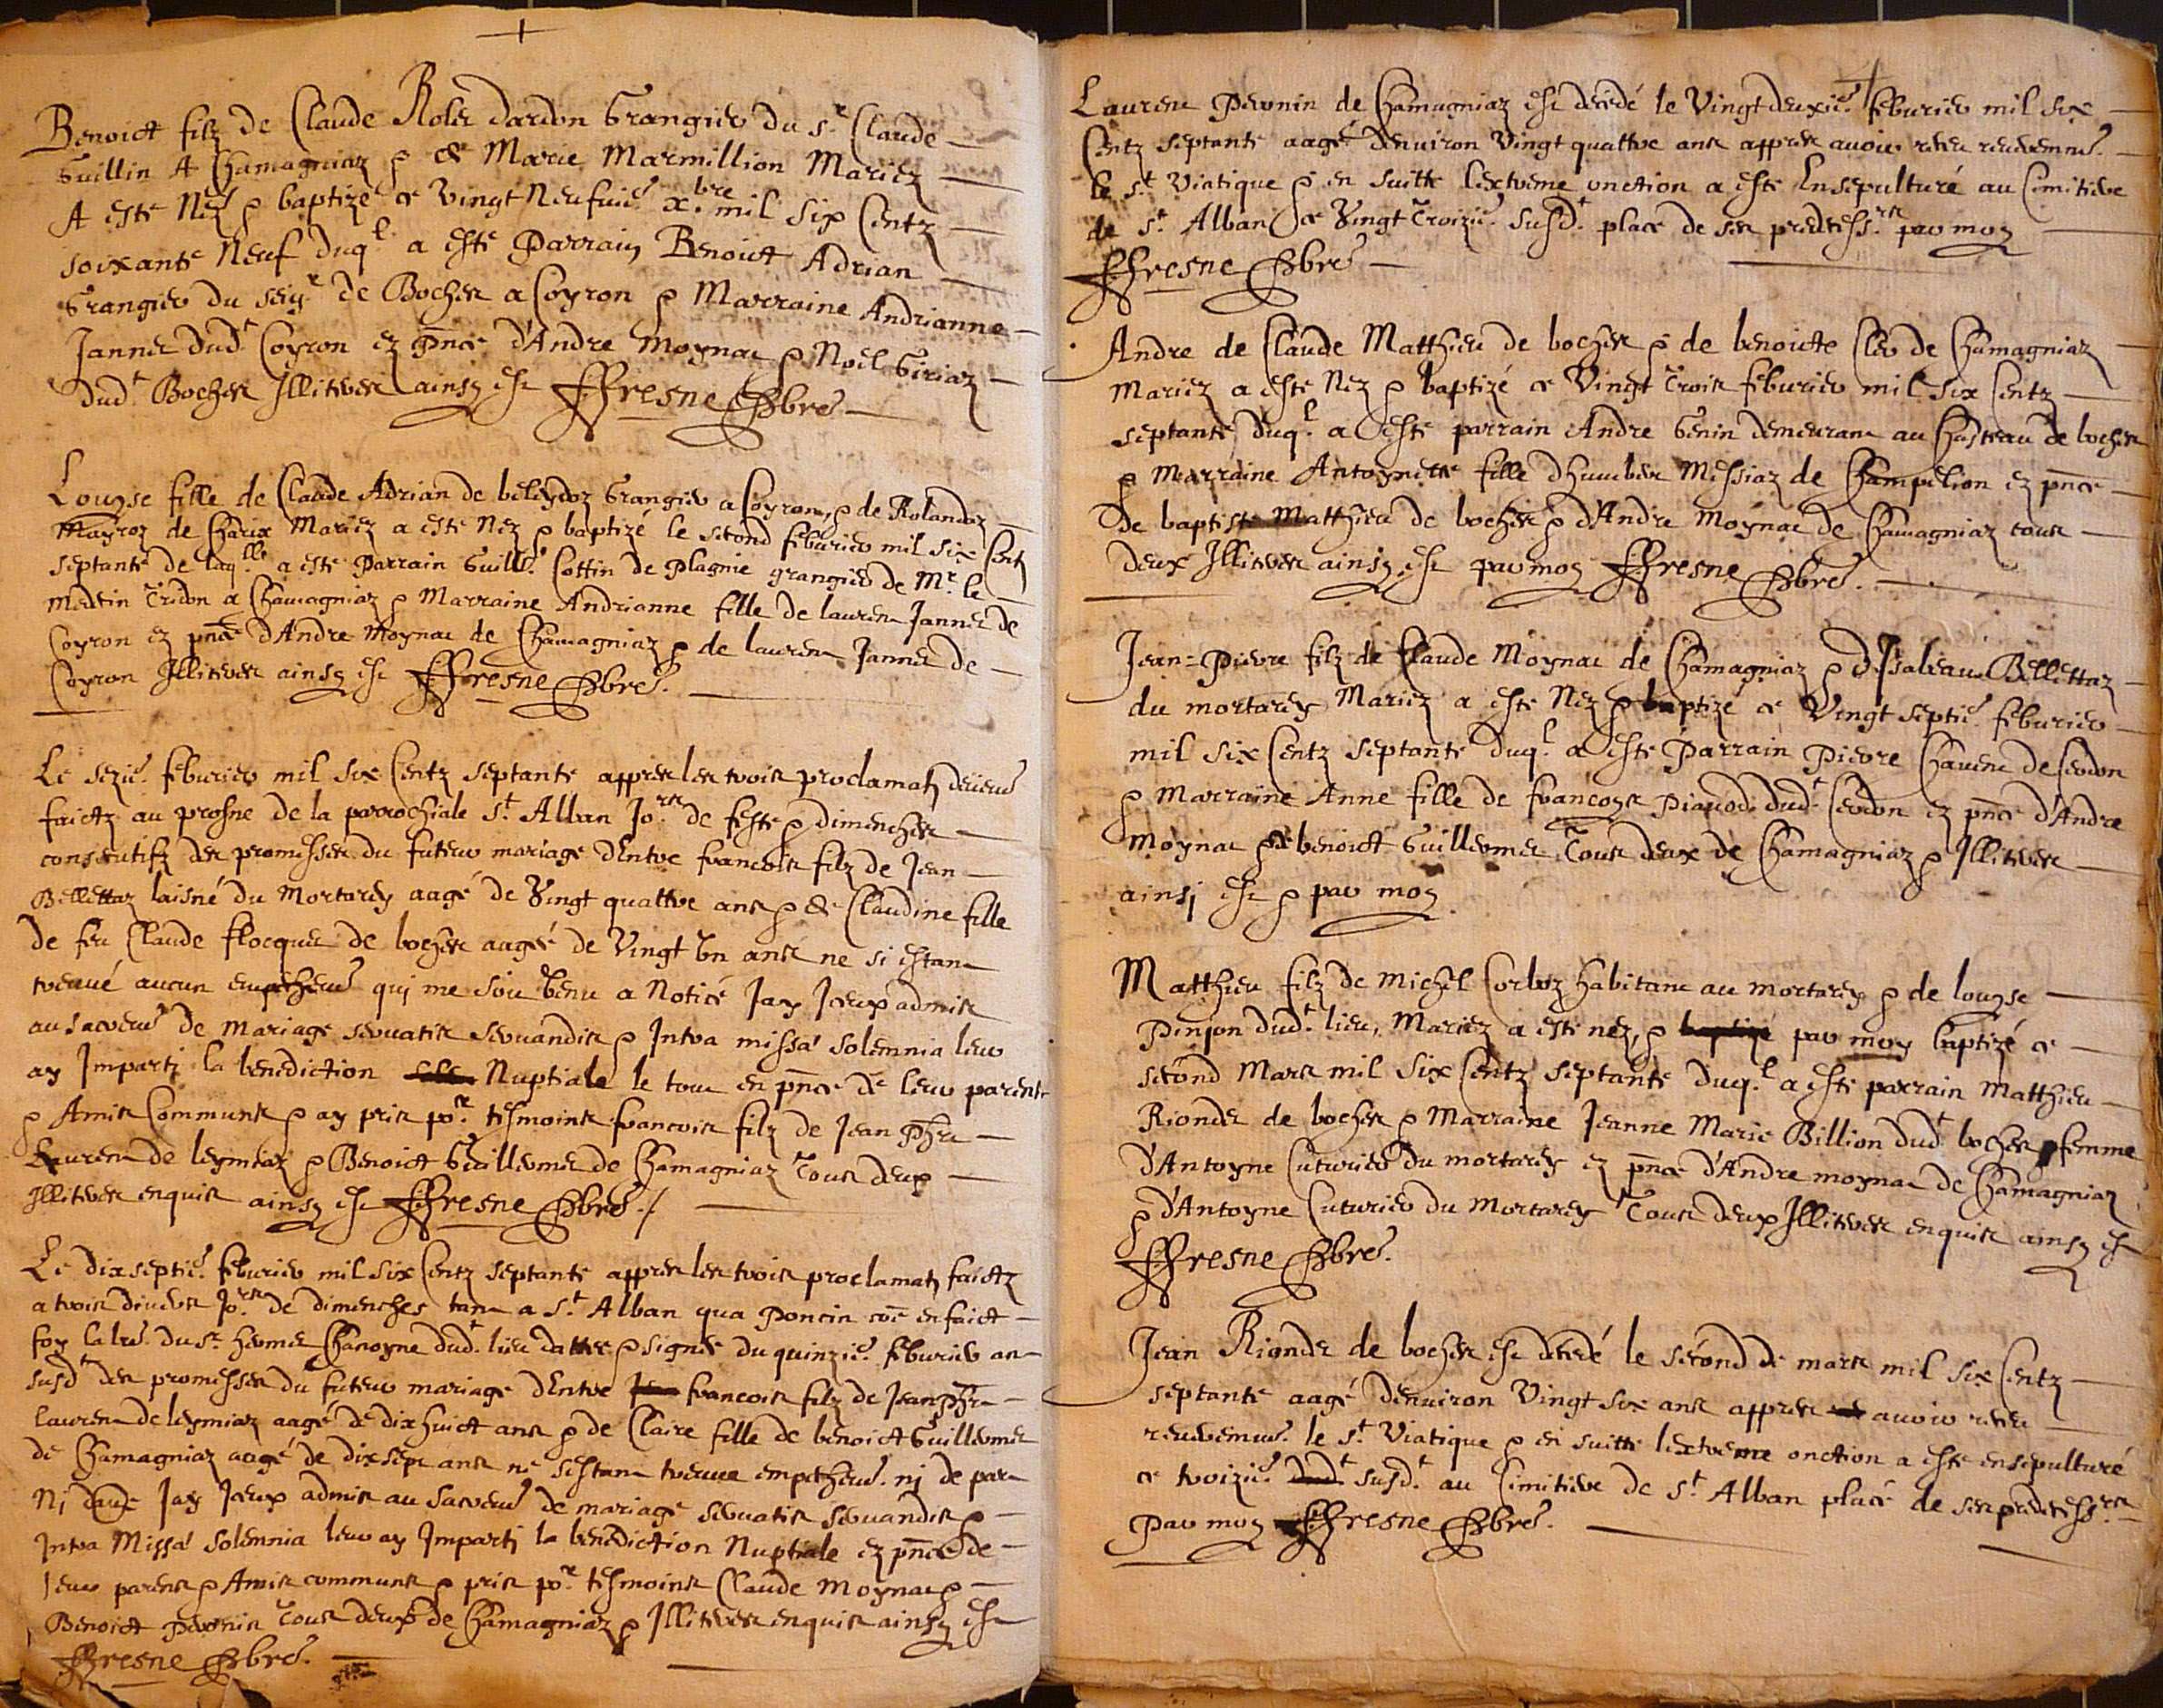 Benoict filz de Claude Rolet dardon Grangier du s.r Claude
Guillin A Chamagniaz & de Marie Marmillion Mariez
A esté Nez & baptizé ce vingt Neufuie. x.bre mil six Centz
soixante Neuf duq.l a esté Parrain Benoict Adrian
Grangier du seig.r de Boches a Coyron & Marraine Andrianne
Jannet dud.t Coyron ez pnce d'Andre Moynat & Noel Giriaz
dud.t Boches Illiteres ainsy est Ffresne Pbre
Louyse fille de Claude Adrian de beleydoz Grangier a Coyron, & de Rolandaz
Mayroz de Charix Mariez a esté Nez & baptizé le second feburier mil six Cent
septante de laq.lle a esté Parrain Guill.e Cottin de Plagnie grangier de M.r le
Medecin Tridon a Chamagniaz & Marraine Andrianne fille de laurent Jannet de
Coyron ez pnce d'Andre Moynat de Chamagniaz & de laurent Jannet de
Coyron Illiteres ainsy est Ffresne Pbre.
Le sezie. feburier mil six Centz septante appres les trois proclamatz
faictz au prosne de la parrochiale s.t Alban Jo.rs de feste & dimenches
consecutifz des promesses du futeur mariage dEntre francois filz de Jean
Bellettaz laisné du Mortarey aagé de Vingt quattre ans & de Claudine fille
de feu Claude flocquet de boches aagée de Vingt Un ans ne si estant
treuué aucun empechem.t qui me soit Venu a Notice Jay Jceux admis
au sacrem.t de mariage seruatis seruandis & Intra missa solemnia leur
ay Imparti la benediction Nuptiale le tout en pnce de leur parents
& Amis Communs & ay pris po.r tesmoins francois filz de Jean Phe
Laurent de leymiaz & Benoict Guillermet de Chamagniaz Tous deux
Illiteres enquis ainsy est Ffresne Pbre./
Le dixseptie. feburier mil six Centz septante appres les trois proclamatz faictz
a trois diuers Jo.rs de dimenches tant a s.t Alban qua Poncin coe en faict
foy la lre. du s.r hermet Chanoyne dud.t lieu dattée & signée du quinzie. feburier an
susd.t des promesses du futeur mariage dEntre francois filz de Jean Phe
laurent de leymiaz aagé de dixhuict ans & de Claire fille de benoict Guillermet
de Chamagniaz aagé de dixsept ans ne sestant treuue empechem.t nj de part
Nj daude Jay Jceux admis au Sacrem.t de mariage seruatis seruandis &
Intra Missa solemnia leur ay Imparti la benediction Nuptiale ez pnce de
leur parents & Amis communs & pris po.r tesmoins Claude Moynat &
Benoict Peronin Tous deux de Chamagniaz & Illiteres enquis ainsy est
Ffresne Pbre.
Laurent Peronin de Chamagniaz est decédé le Vingtdeuxie. feburier mil six
Centz septante aagé denuiron Vingt quattre ans appres auoir receu reuerem.t
le s.t Viatique & en suitte lextreme onction a esté Ensepulturé au Cimitiere
de s.t Alban ce Vingt Troizie. susd.t place de ses predecess.rs par moy
Ffresne Pbre
Andre de Claude Matthieu de boches & de benoicte Cler de Chamagniaz
Mariez a esté Nez & baptizé ce Vingt Trois feburier mil six Centz
septante, duq.l a esté parrain Andre Genin demeurant au Chasteau de boches
& Marraine Antoynette fille dhumber Messiaz de Champelion ez pnce
de baptiste Matthieu de boches & d'Andre Moynat de Chamagniaz tous
deux Illiteres ainsy est par moy Ffresne Pbre.
Jean=Pierre filz de Claude Moynat de Chamagniaz & dIsabeau Bellettaz
du mortarey Mariez a esté Nez & baptizé ce Vingt septie. feburier
mil six Centz septante duq.l a esté Parrain Pierre Chauent de Cerdon
& Marraine Anne fille de francoys Piauod dud.t Cerdon ez pnce d'Andre
Moynat & benoict Guillermet Tous deux de Chamagniaz & Illiteres
ainsj est & par moy
Matthieu filz de Michel Corboz habitant au mortarey & de louyse
Pinjon dud.t lieu, Mariez a esté nez, & par moy baptizé ce
second Mars mil six Centz septante duq.l a esté parrain Matthieu
Riondet de boches & Marraine Jeanne Marie Billion dud.t boches femme
d'Antoyne Cuturier du mortarey ez pnce d'Andre moynat de Chamagniaz
& d'Antoyne Cuturier du Mortarey Tous deux Illiteres enquis ainsy est
Ffresne Pbre.
Jean Riondet de boches est decédé le second de mars mil six Centz
septante aagé denuiron Vingt six ans appres auoir receu
reuerem.t le s.t Viatique & en suitte lextreme onction a esté ensepulturé
ce troizie. susd.t au Cimitiere de s.t Alban place de ses predecess.rs
Par moy Ffresne Pbre.